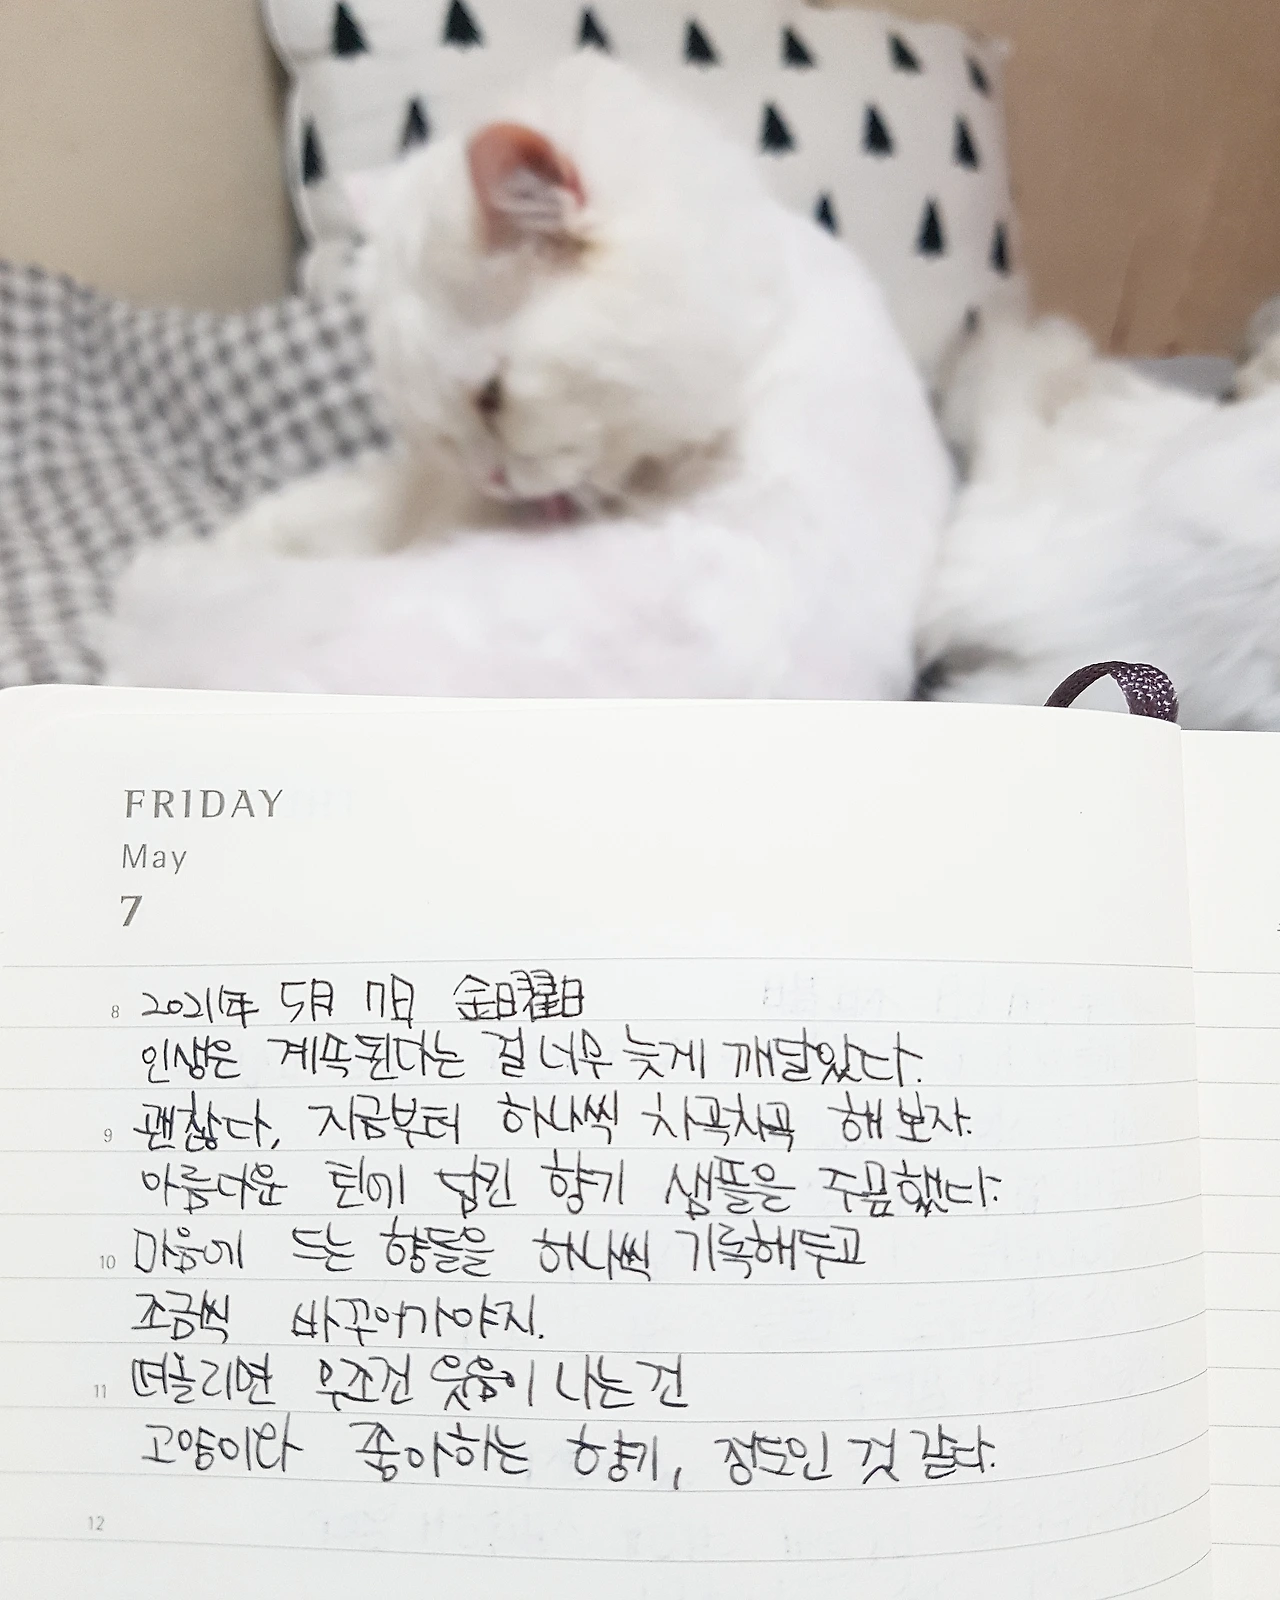 FRIDAY
May
7
8 2021年 5月 7日 金曜日
인생은 계속된다는 걸 너무 늦게 깨달았다.
9 괜찮다, 지금부터 하나씩 차곡차곡 해보자.
아름다운 틴에 담긴 향기 샘플을 주문했다.
10 마음에 드는 향들을 하나씩 기록해두고
조금씩 바꾸어가야지.
11 떠올리면 무조건 웃음이 나는 건
고양이와 좋아하는 향기, 정도인 것 같다.
12